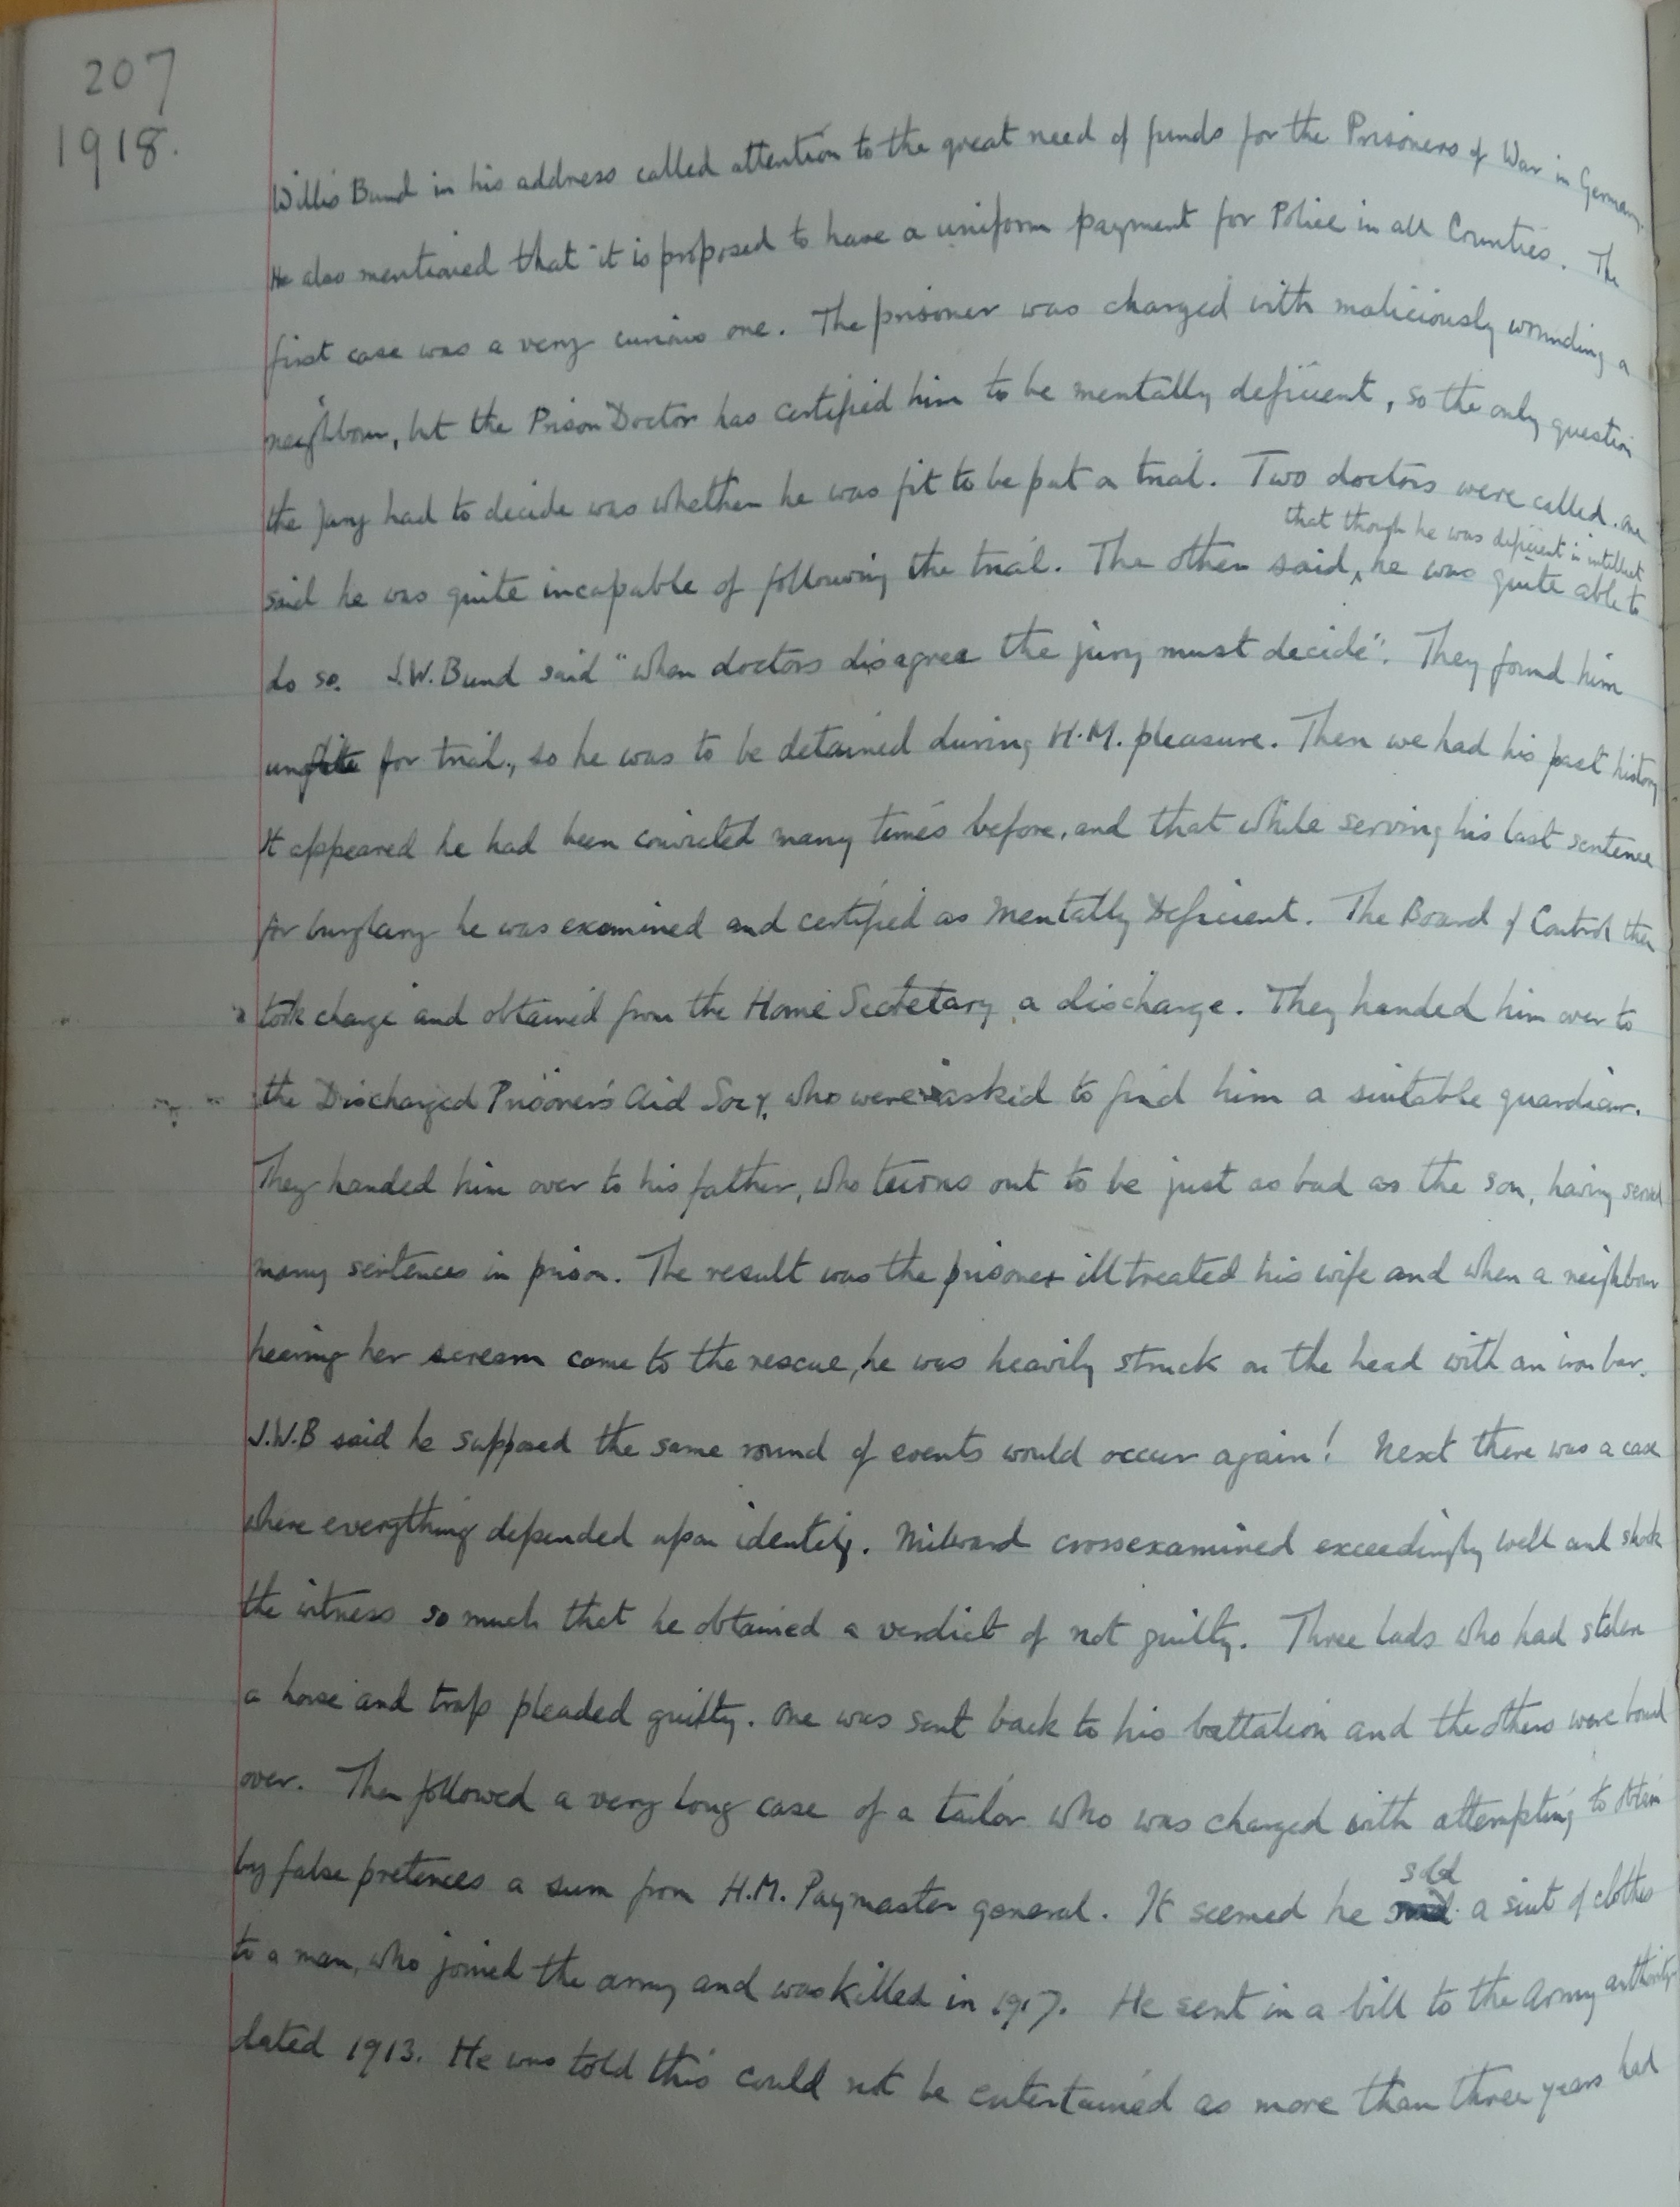 207
1918.
Willis Bund in his address called attention to the great need of funds for the Prisoners of War in Germany.
He also mentioned that it is proposed to have a uniform payment for Police in all Counties. The
first case was a very curious one. The prisoner was charged with maliciously wounding a
neighbour, but the Prison Doctor has certified him to be mentally deficient, so the only question
the jury had to decide was whether he was fit to be put on trial. Two doctors were called. one
that though he was deficient in intellect
said he was quite incapable of following the trial. The other said, he was quite able to
do so. J.W. Bund said "when doctors disagree the jury must decide". They found him
for trial, so he was to be detained during H.M. pleasure. Then we had his past history
It appeared he had been convicted many times before, and that while serving his last sentence
for burglary he was examined and certified as Mentally Deficient. The Board of Control then
took charge and obtained from the Home Secretary a discharge. They handed him over to
the Discharged Prisoner's Aid Socy, who were asked to find him a suitable guardian.
They handed him over to his father, who turns out to be just as bad as the son, having served
many sentences in prison. The result was the prisoner illtreated his wife and when a neighbour
hearing her scream came to the rescue, he was heavily struck on the head with an iron bar.
J.W.B said he supposed the same round of events would occur again! Next there was a case
where everything depended upon identity. Milward crossexamined exceedingly well and shook
the witness so much that he obtained a verdict of not guilty. Three lads who had stolen
a horse and trap pleaded guilty. One was sent back to his battalion and the others were bound
over. Then followed a very long case of a tailor who was charged with attempting to obtain
by false pretences a sum from H.M. Paymaster general. It seemed he sold a suit of clothes
to a man, who joined the army and was killed in 1917. He sent in a bill to the Army authority
dated 1913. He was told this could not be entertained as more than three years had